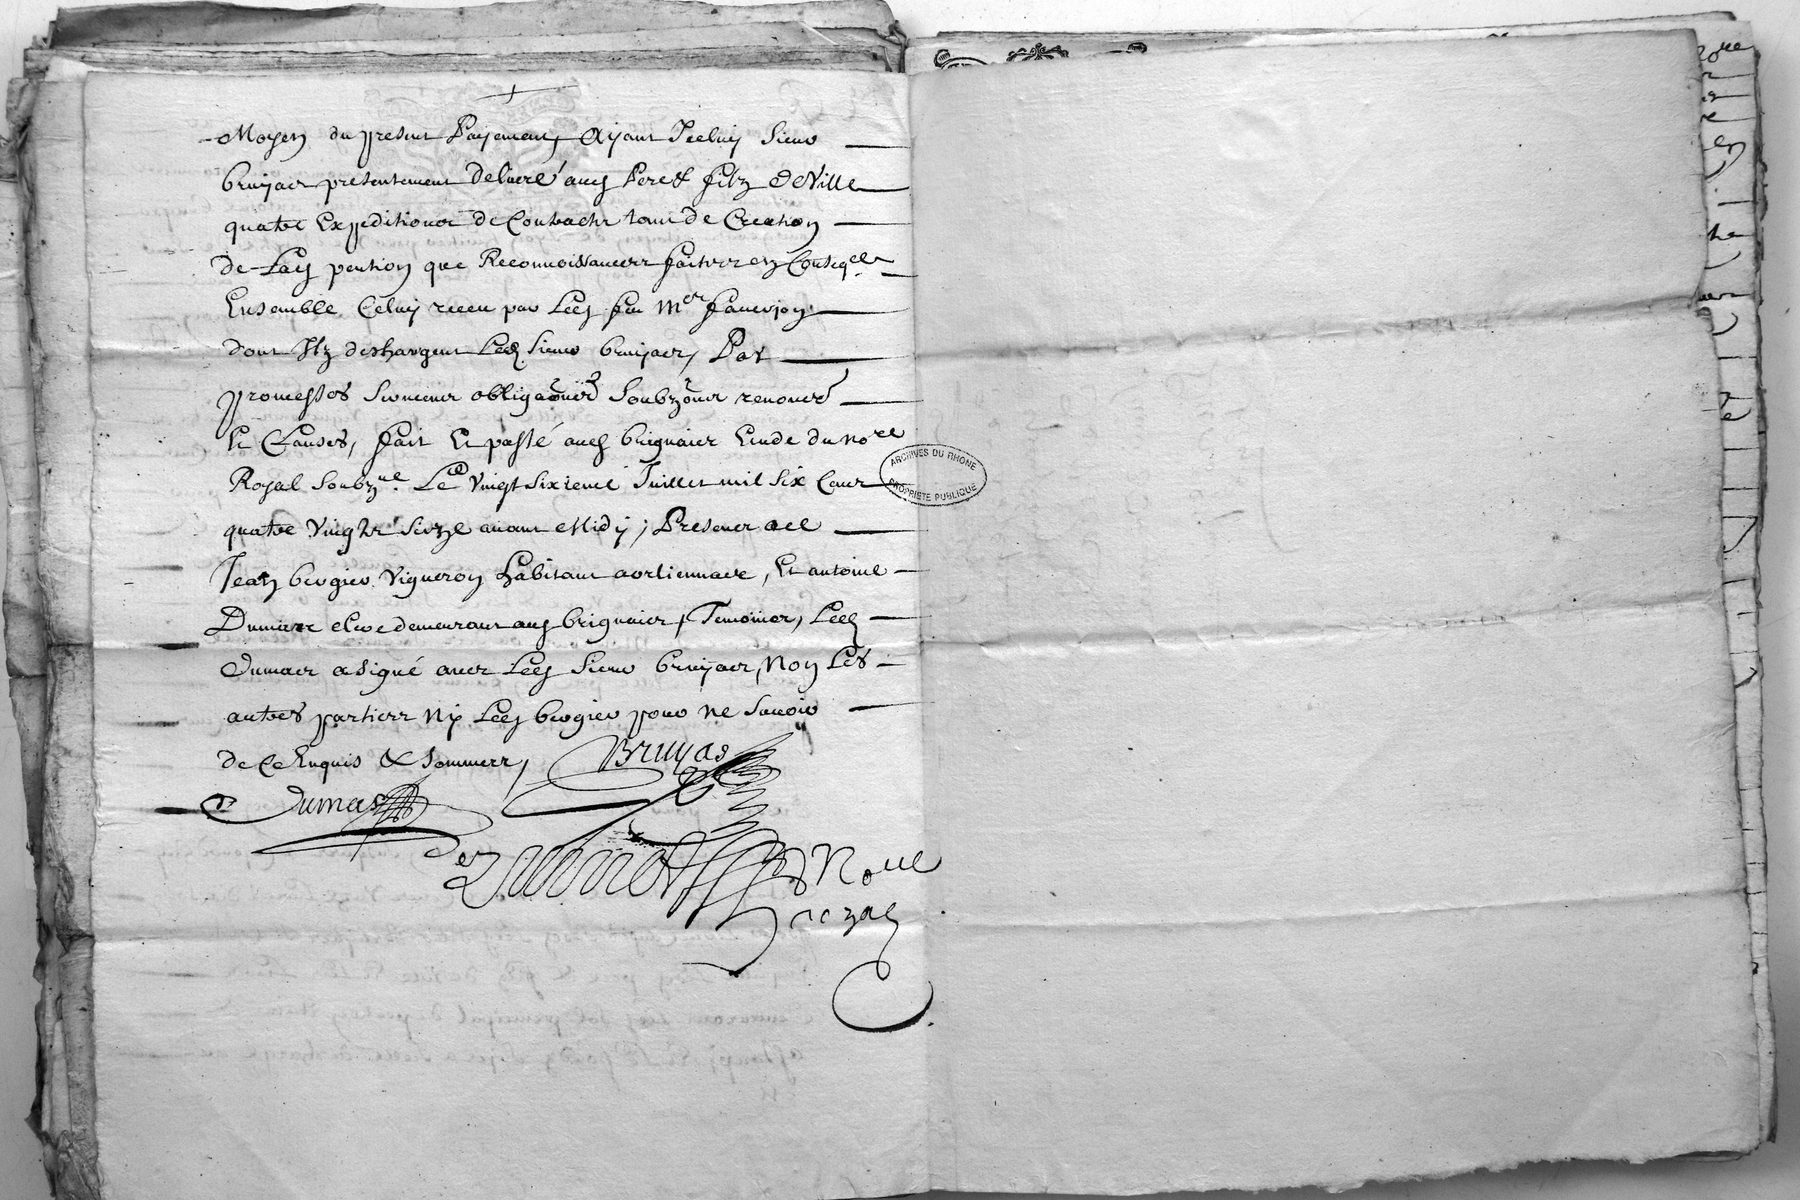 Moyen du present Payement, Ayant Iceluy Sieur
bruyas presentement delivré ausd Pere & filz DeVille
quatre Expeditions de Contractz tant de Creation
de Lad pention que Reconnoissances faictes en Conseqce
Ensemble Celuy receu par Led feu Me
dont Ilz deschargent Led Sieur bruyas, Par
promesses serment obligaōns Soubzōns renoncōns
Et Clauses, fait Et passé aud brignais Etude du nore
Royal Soubzné Le Vingt sixieme Juillet mil six Cent
quatre Vingtz Seize avant Midy, Presents
Jean brogier Vigneron habitant, Et antoine
Dumas clerc demeurant aud brignais, Temoins, Led
Dumas a signé avec Led Sieur bruyas, Non Les
autres parties Ny Led brogier pour ne Savoir
de Ce Enquis & sommes,
Bruyas
Dumas
Nore
Royal
ARCHIVES DU RHONE
PROPRIETE PUBLIQUE